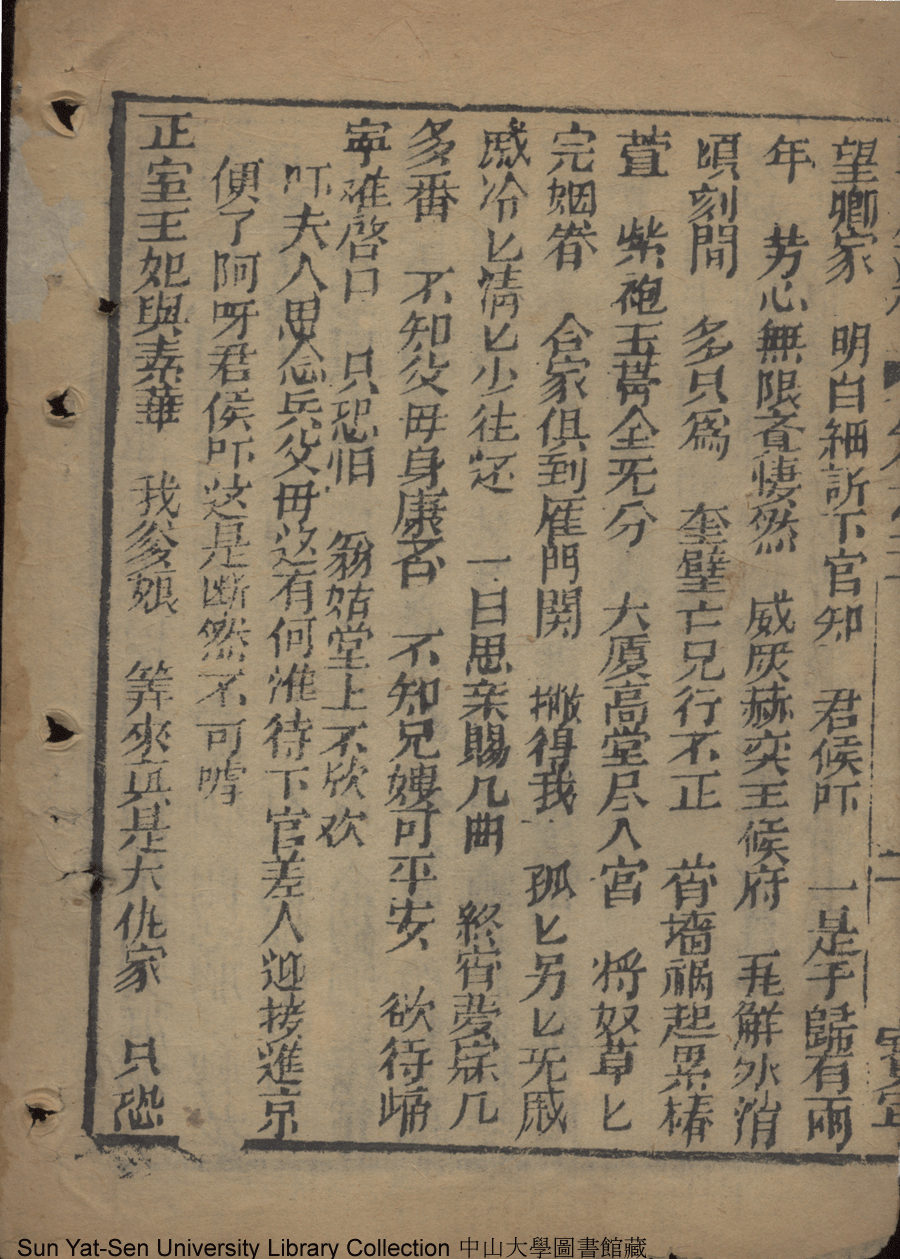 望卿家　明白細訴下官知　君候吓　一是于歸有兩
年　芳心無限吝悽然　威灰赫奕王候府　瓦解氷消
頃刻間　多只爲　奎璧亡兄行不正　蕭墻禍起累椿
萱　紫袍玉帶全无分　大厦高堂尽入宮　将奴草匕
完姻眷　合家俱到雁門開　撇得我　孤匕另匕无戚
戚冷匕清匕少往还　一日思亲腸几曲　終宵夢寐几
多番　不知父毋身康否　不知兄嫂可平安　欲待歸
寧难啓口　只恐怕　翁姑堂上不欣欢
吓夫人思念兵父毋这有何准待下官差人迎接進京
便了阿呀君侯吓这是断然不可
正室王妃與素華　我爹娘　筭來真是大仇家　只恐
Sun Yat-Sen University Library Collection 中山大學圖書館藏